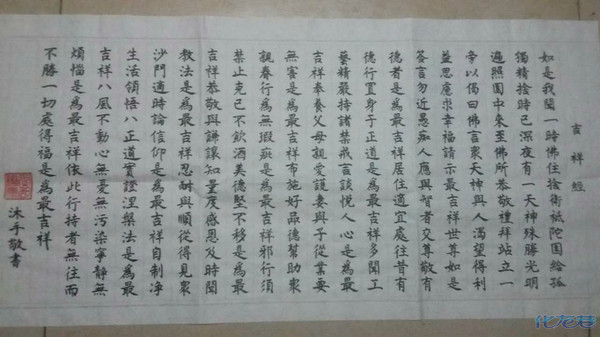 吉祥經
如是我聞一時佛住捨衛祗陀園給孤
獨精捨時已深夜有一天神殊勝光明
遍照園中來至佛所恭敬禮拜站立一
旁以偈白佛言衆天神與人渴望得利
益思慮求幸福請示最吉祥世尊如是
答言勿近愚痴人應與智者交尊敬有
德者是爲最吉祥居住適宜處往昔有
德行置身于正道是爲最吉祥多聞工
藝精嚴持諸禁戒言談悅人心是爲最
吉祥奉養父母親愛護妻與子從業要
無害是爲最吉祥布施好品德幫助衆
親眷行爲無瑕疵是爲最吉祥邪行須
禁止克己不飲酒美德堅不移是爲最
吉祥恭敬與謙讓知量度感恩及時聞
教法是爲最吉祥忍耐與順從得見衆
沙門適時論信仰是爲最吉祥自制净
生活領悟八正道實證涅槃法是爲最
吉祥八風不動心無憂無污染寧靜無
煩惱是爲最吉祥依此行持者無往而
不勝一切處得福是爲最吉祥
沐手敬書
化龙巷